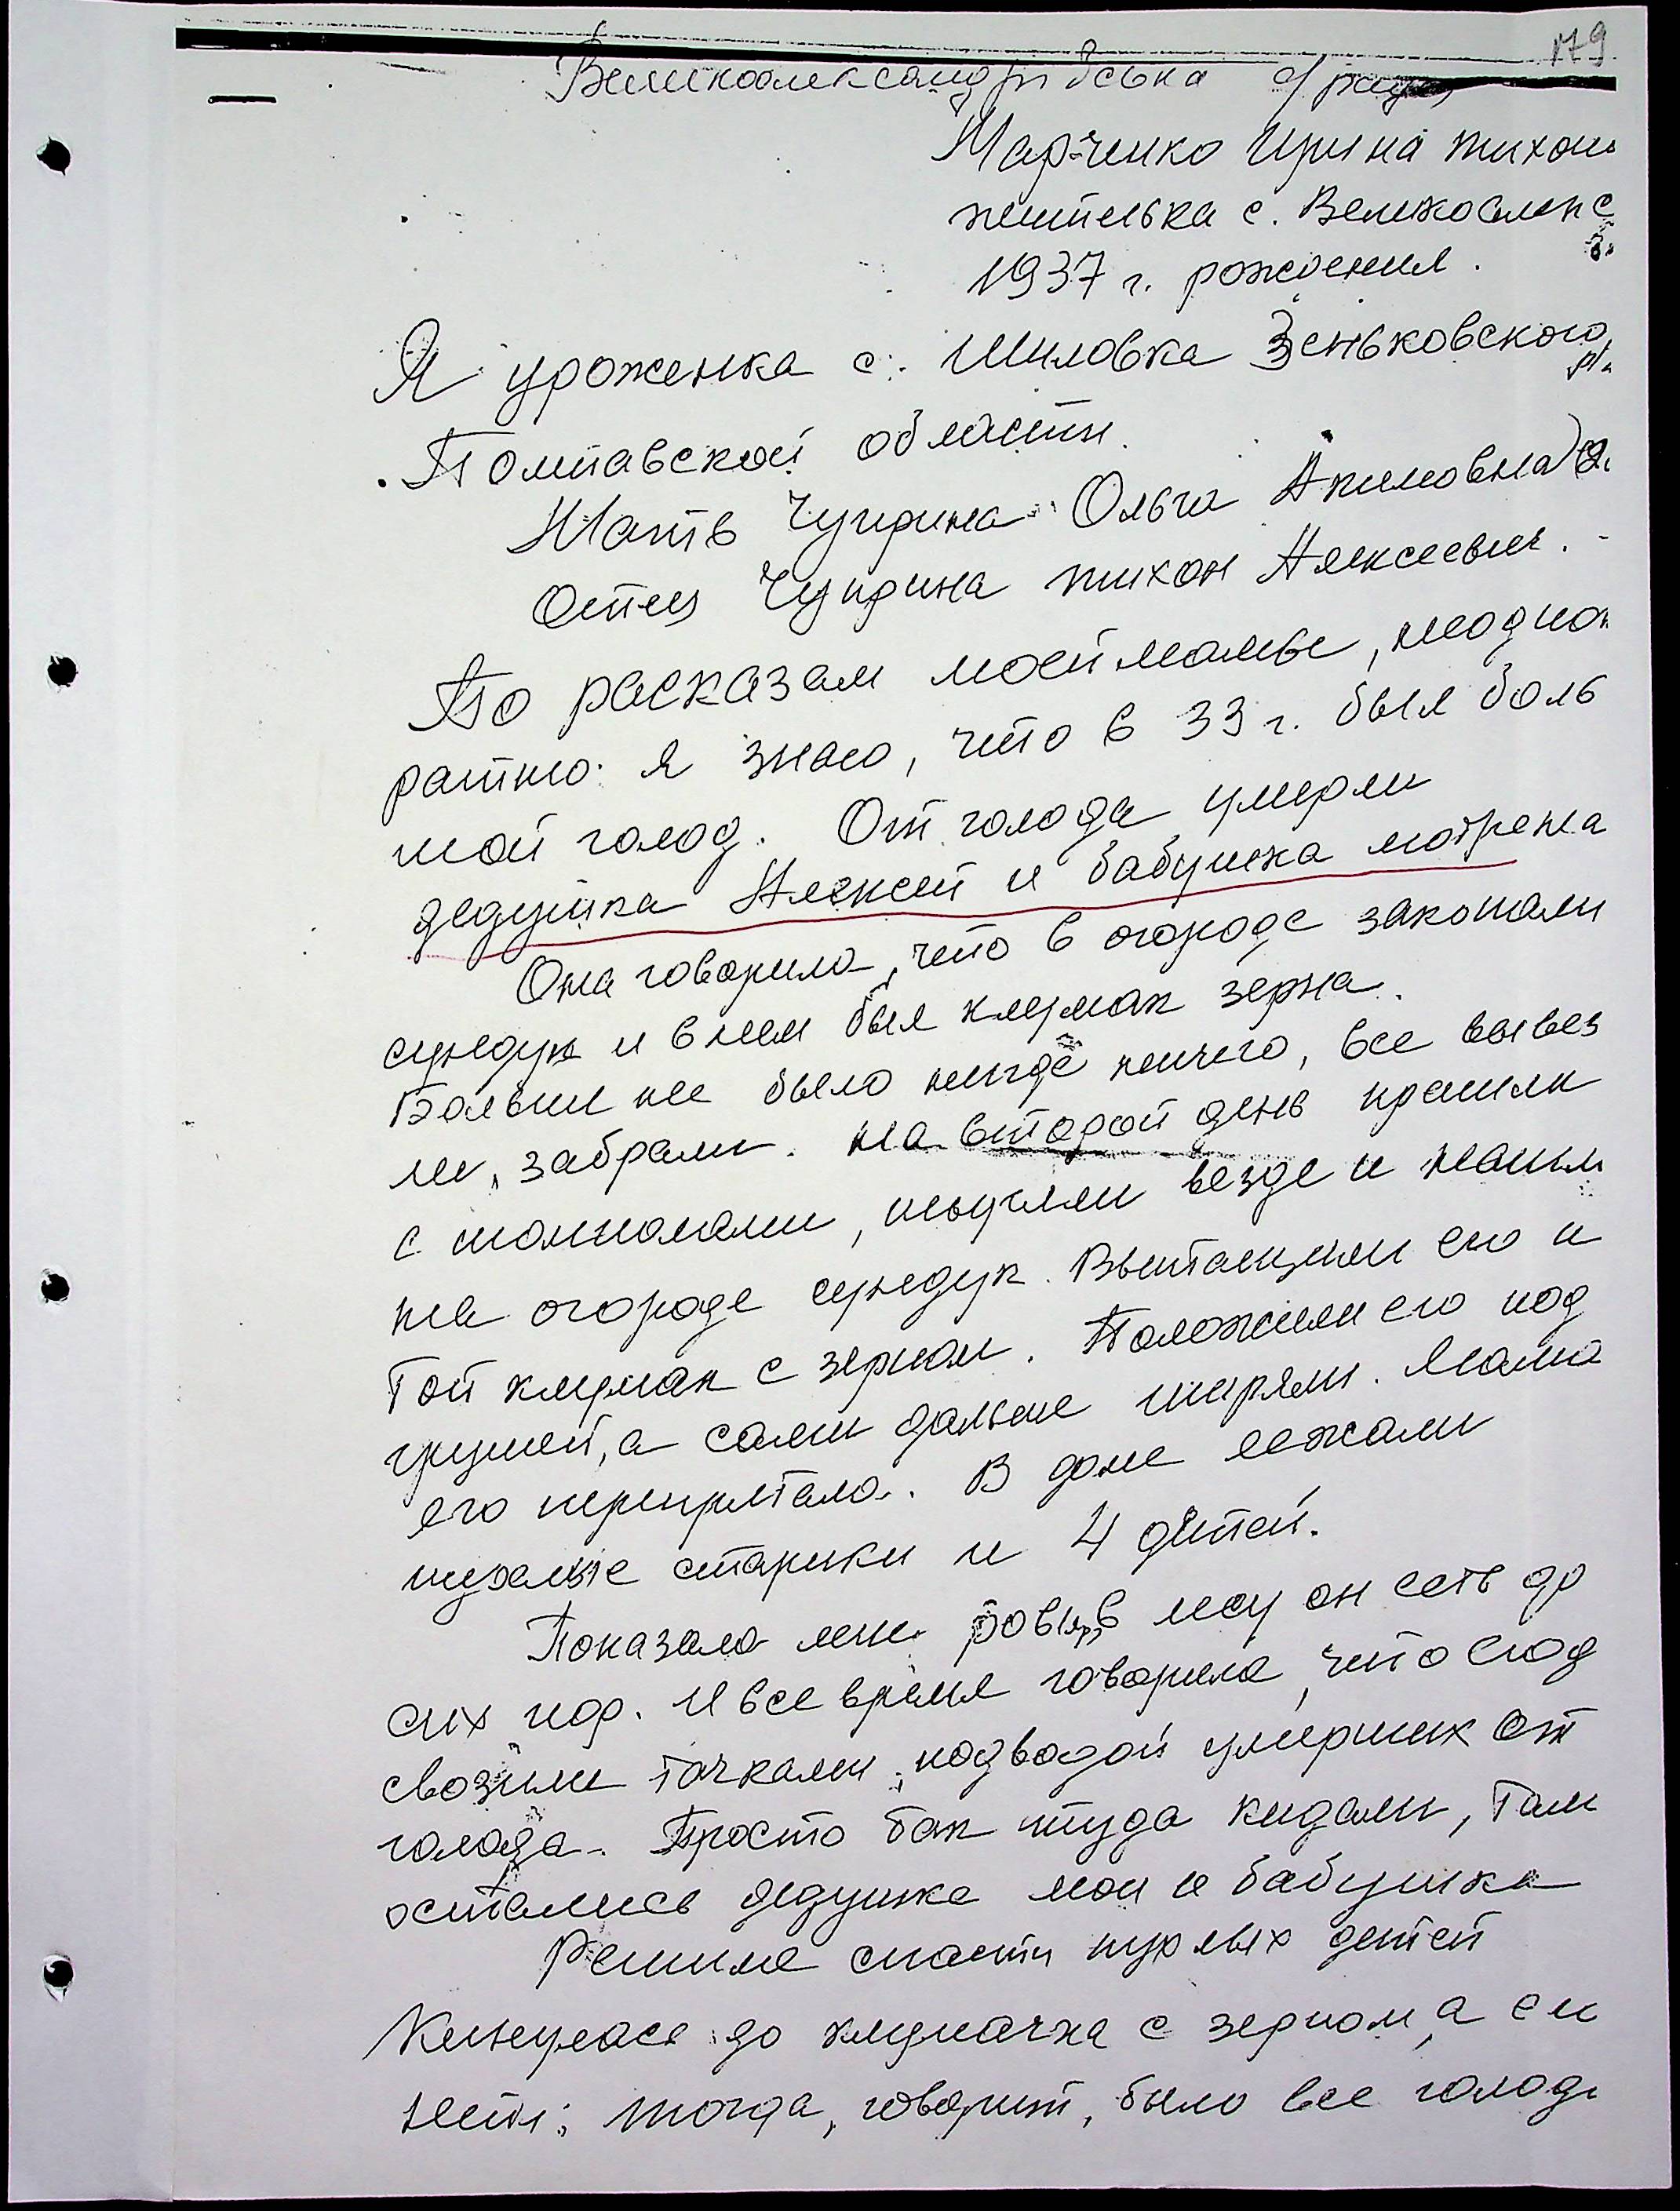 179
Великоолександрівська с/рада
Марченко Ирина Тихон
жителька с. Великоалекс
1937 г. рождения.
Я уроженка с. Шиловка Зеньковского
р/.
Полтавской области.
Мать Чуприна Ольга Акимовна
Отец Чуприна Тихон Алексеевич.
По расказам моей мамы, неоднок
ратно я знаю, что в 33 г. был боль
шой голод. От голода умерли
дедушка Алексей и бабушка Мотрена
Она говорила, что в огороде закопали
сундук и в нем был клумак зерна.
Больше не было нигде ничего, все вывез
ли, забрали. На второй день пришли
с шомполами, шыряли везде и нашли
на огороде сундук. Вытащили его и
той клумак с зерном. Положили его под
грушей, а сами дальше ширяли. Мама
его перепрятала. В доме лежали
пухлые старики и 4 дитей.
Показала мне ров, в лесу он есть до
сих пор. И все время говорила, что сюд
свозили тачками, подводой умерших от
голода. Просто так туда кидали, там
остались дедушка мой и бабушка
Решила спасти пухлых детей
Кинулась до клумачка с зерном, а его
нету; тогда, говорит, было все голод